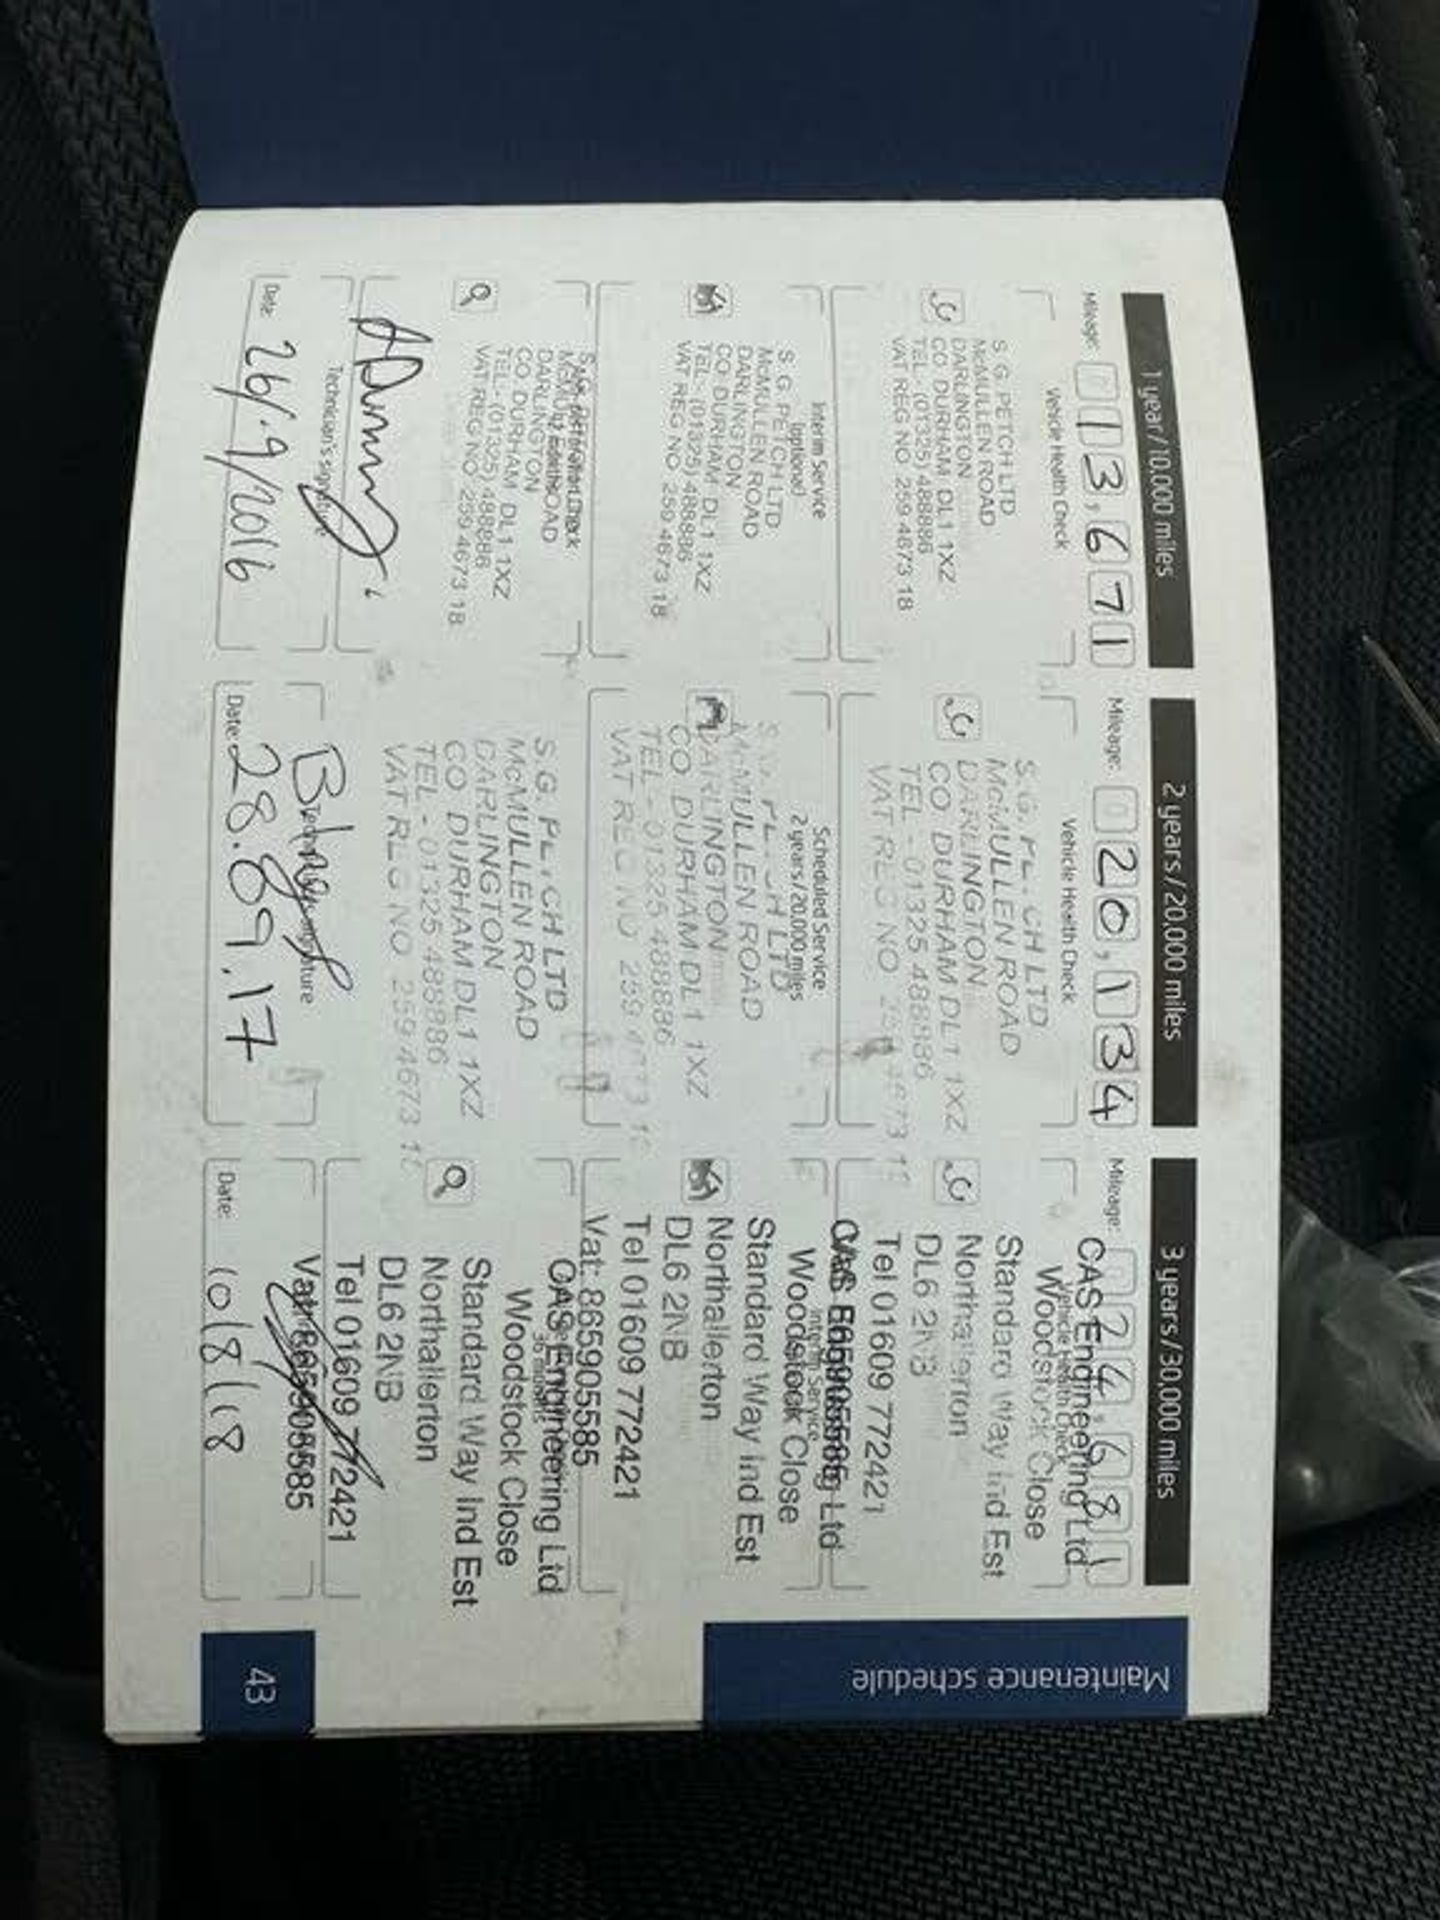 1 year/10,000 miles
Mileage: 013,671
Vehicle Health Check
S. G. PETCH LTD
McMULLEN ROAD
DARLINGTON
CO. DURHAM DL1 1XZ
TEL - (01325) 488886
VAT REG NO 259 4673 18
Interim Service
(optional)
S. G. PETCH LTD
McMULLEN ROAD
DARLINGTON
CO DURHAM DL1 1XZ
TEL - (01325) 488886
VAT REG NO 259 4673 18
DARLINGTON
CO DURHAM DL1 1XZ
TEL - (01325) 488886
VAT REG NO 259 4673 18
Technician's signature
Date: 26/9/2016
2 years/20,000 miles
Mileage: 020,134
Vehicle Health Check
S.G. PETCH LTD
McMULLEN ROAD
DARLINGTON
CO DURHAM DL1 1XZ
TEL - 01325 488886
VAT REG NO 259 4673 18
Scheduled Service
2 years/20,000 miles
S.G. PETCH LTD
McMULLEN ROAD
DARLINGTON
CO DURHAM DL1 1XZ
TEL - 01325 488886
VAT REG NO 259 4673 18
S.G. PETCH LTD
McMULLEN ROAD
DARLINGTON
CO DURHAM DL1 1XZ
TEL - 01325 488886
VAT REG NO 259 4673 18
Date: 28.09.17
3 years/30,000 miles
Mileage: 024,681
Vehicle Health Check
CAS Engineering Ltd
Woodstock Close
Standard Way Ind Est
Northallerton
DL6 2NB
Tel 01609 772421
Interim Service
CAS Engineering Ltd
Woodstock Close
Standard Way Ind Est
Northallerton
DL6 2NB
Tel 01609 772421
Vat: 865905585
CAS Engineering Ltd
Woodstock Close
Standard Way Ind Est
Northallerton
DL6 2NB
Tel 01609 772421
Vat: 865905585
Date: 10/8/18
Maintenance schedule
43